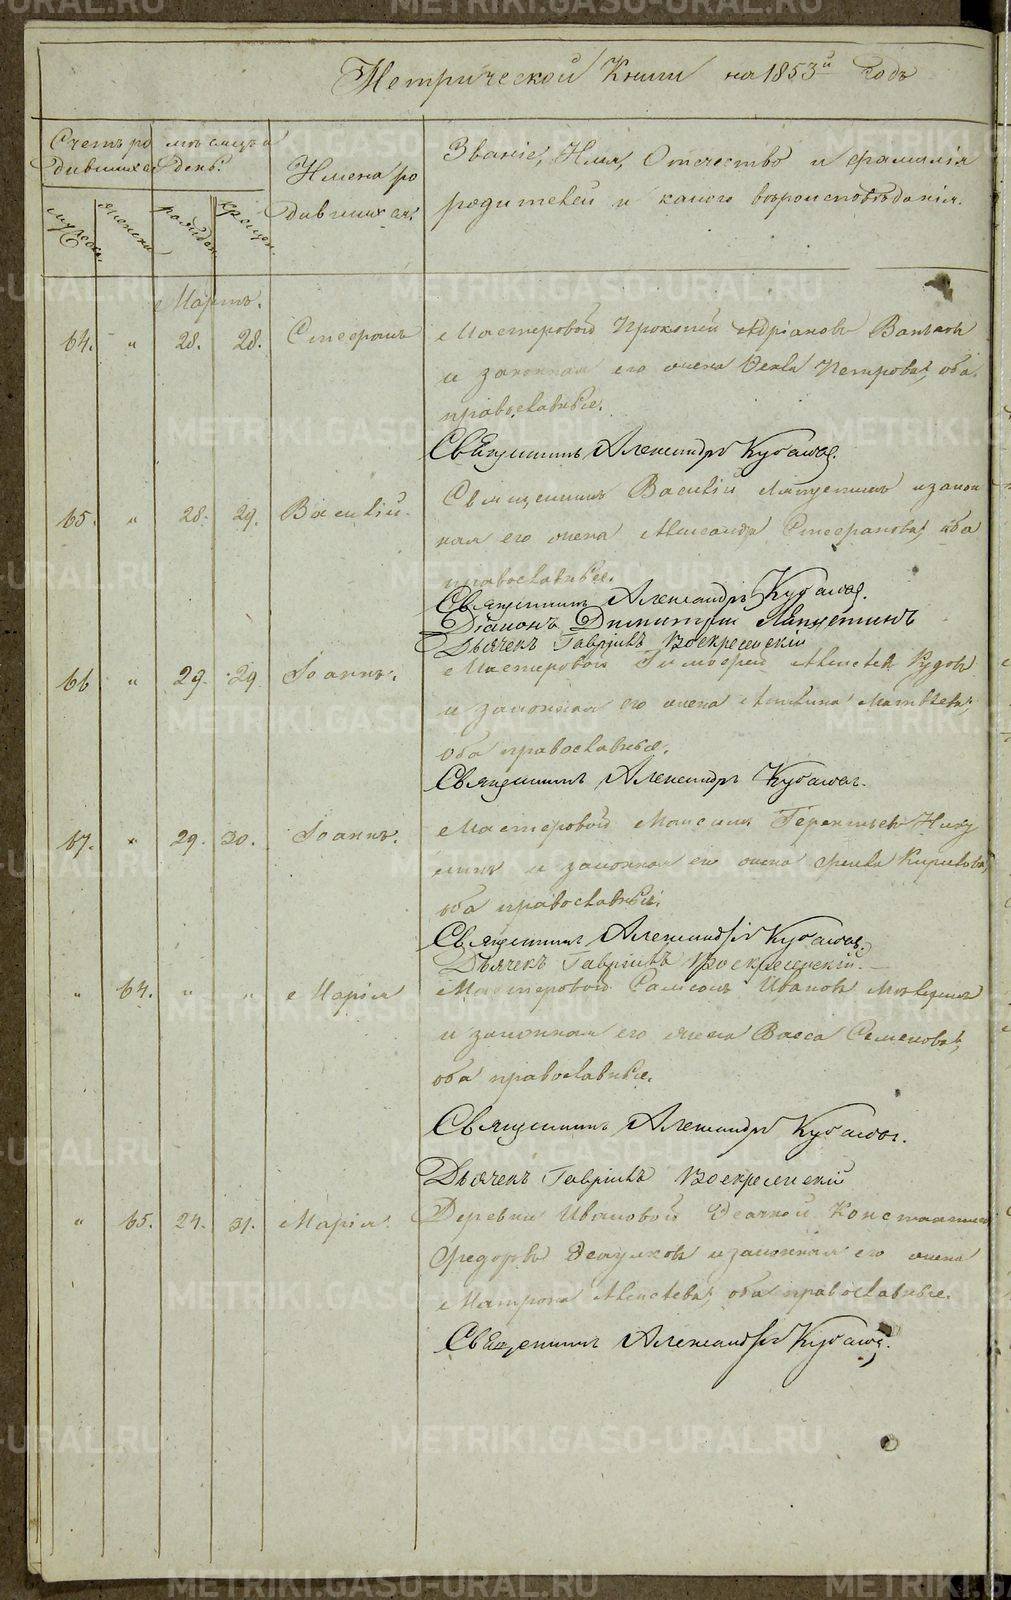 Метрической Книги на 1853й годъ
Счетъ ро дившихся
мѣсяцъ и день.
Имена ро дившихся.
Званіе, Имя, Отчество и фамилія
родителей и какого вѣроисповѣданія.
мужеск.
женска
рожден.
крещен.
Мартъ.
64. " 28. 28. Стефанъ Мастеровой Прокопій Адріановъ
и законная его жена Ѳекла Петрова, оба
православные.
Священникъ Александръ
65. " 28. 29. Василій. Священникъ Василій Ляпустинъ и закон
ная его жена Александра Стефанова, оба
православные.
Священникъ Александръ
Діаконъ Димитрій Ляпустинъ
Дьячекъ Гавріилъ Воскресенскій
66 " 29. 29 Іоаннъ. Мастеровой Тимофей
и законная его жена Матвѣева,
оба православные.
Священникъ Александръ
67. " 29. 30. Іоаннъ. Мастеровой Максимъ Терентьевъ Нику
линъ и законная его жена Ѳекла Кирилова,
оба православные.
Священникъ Александръ
Дьячекъ Гавріилъ Воскресенскій.
" 64. " " Марія Мастеровой Самсонъ Ивановъ
и законная его жена Васса Семенова,
оба православные.
Священникъ Александръ
Дьячекъ Гавріилъ Воскресенскій
" 65. 24. 31. Марія. Деревни Ивановой Константинъ
Федоровъ и законная его жена
Матрона Алексѣева, оба православные.
Священникъ Александръ
METRIKI.GASO-URAL.RU